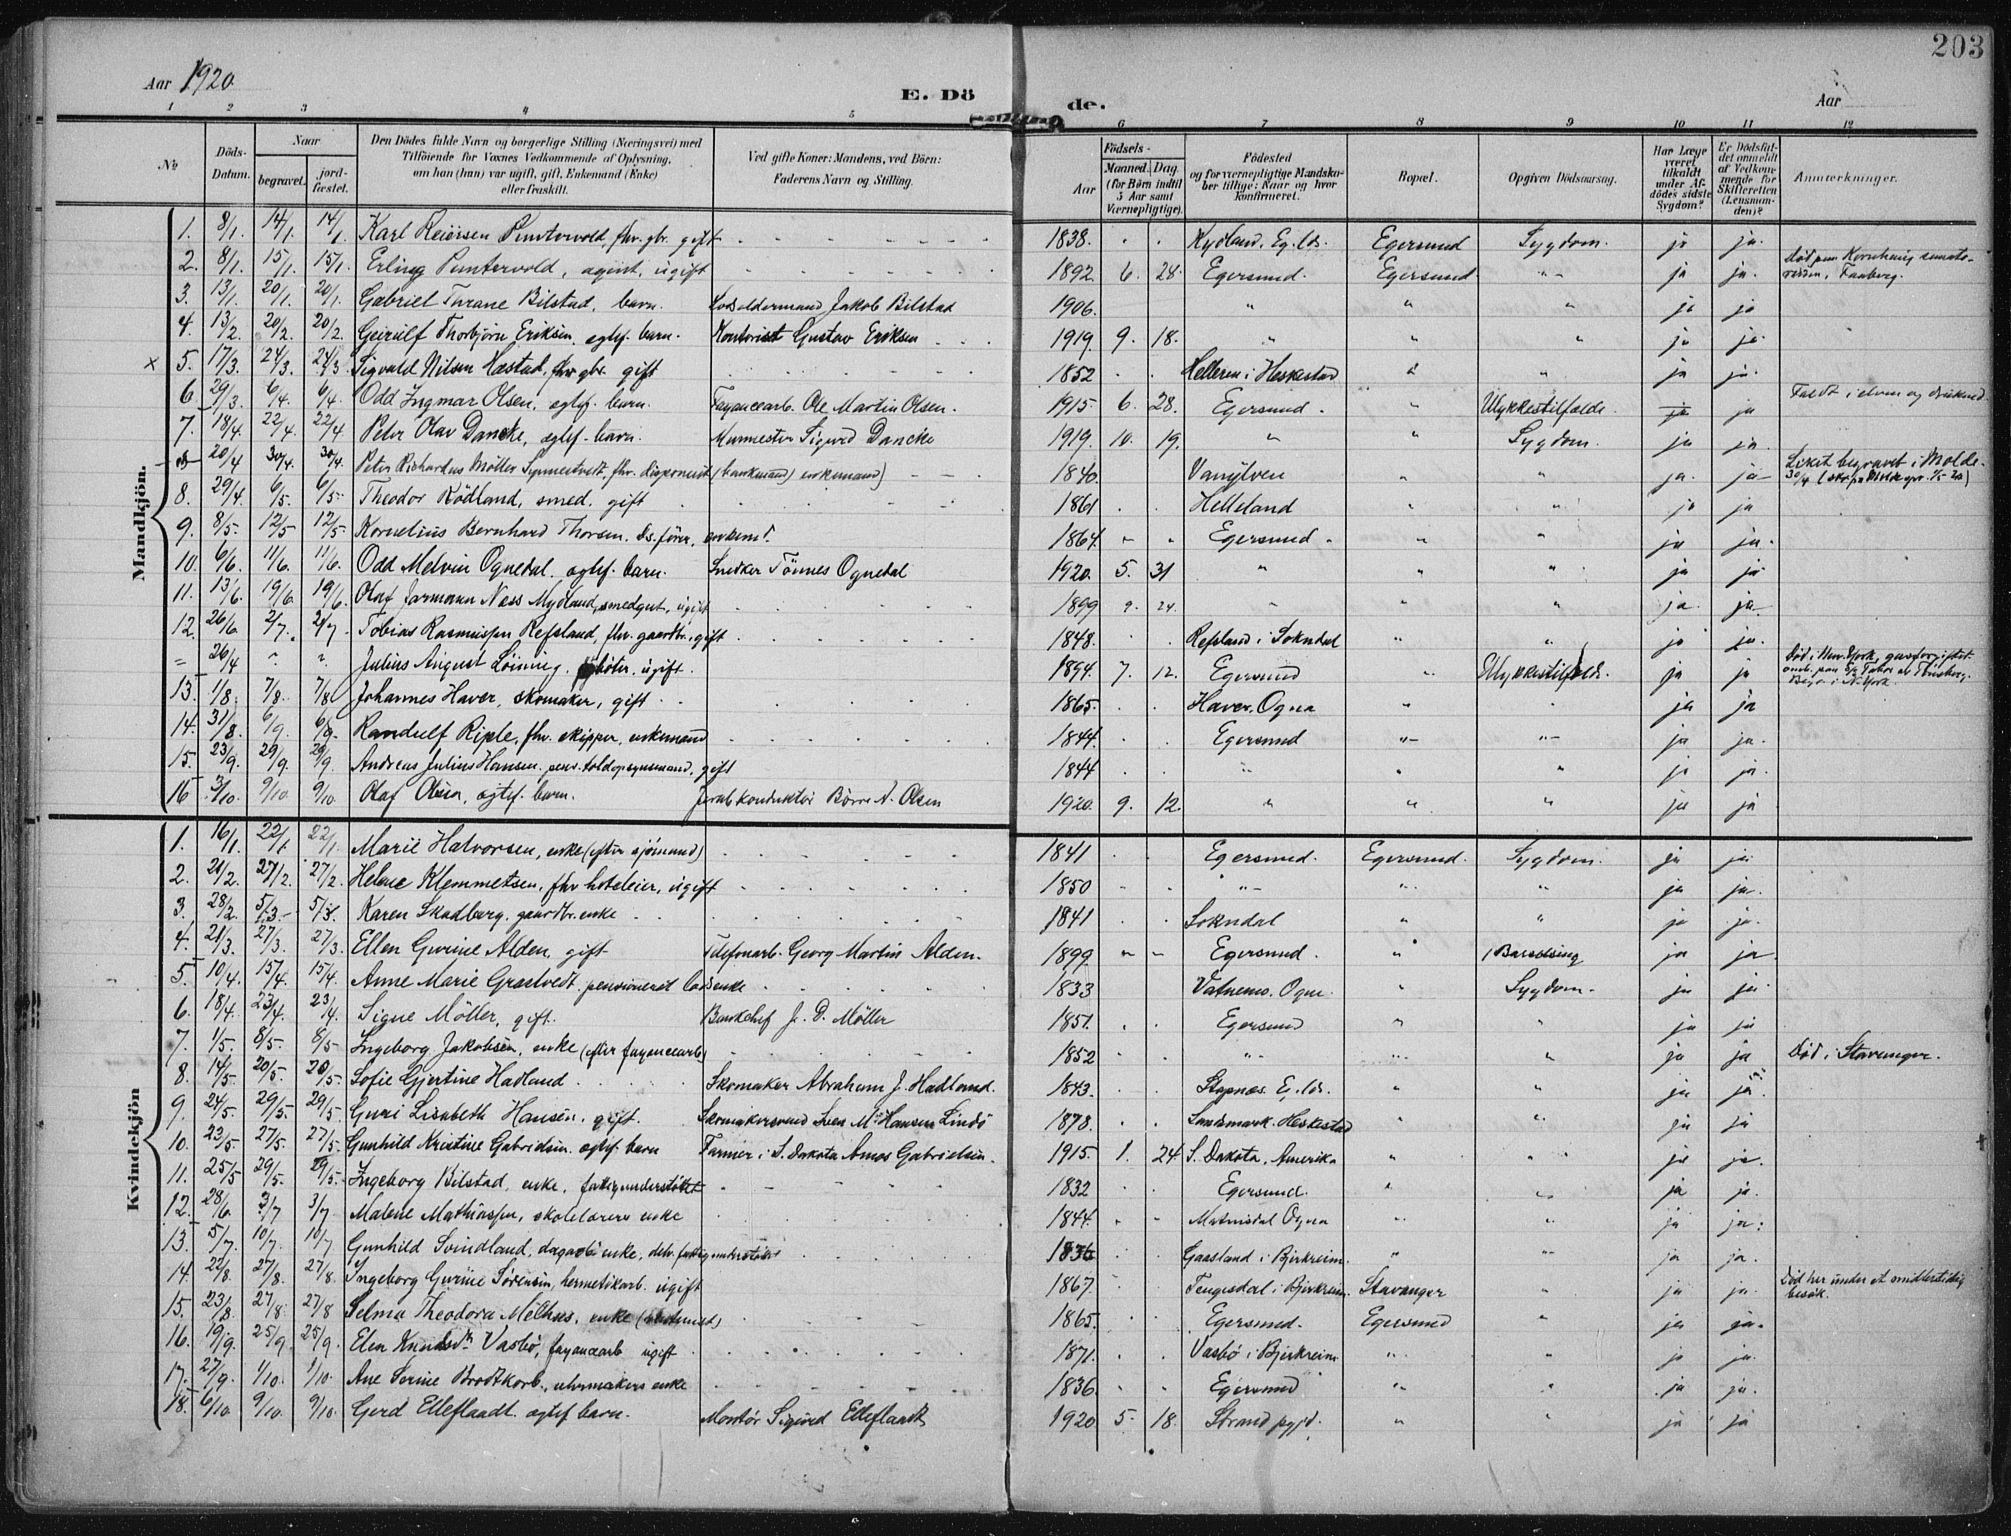 203
Aar 1920
E. Dö
de.
Aar
1 2 3 4 5 6 7 8 9 10 11 12
No
Döds-Datum.
Naar
begravet.
jord-fæstet.
Den Dödes fulde Navn og borgerlige Stilling (Næringsvei) med
Tilföiende for Voxnes Vedkommende af Oplysning,
om han (hun) var ugift, gift, Enkemand (Enke)
eller fraskilt.
Ved gifte Koner: Mandens, ved Börn:
Faderens Navn og Stilling.
Födsels-
Aar
Maaned. Dag.
(for Börn indtil
5 Aar samt
Værnepligtige).
Födested
og for værnepligtige Mandska-
ber tillige: Naar og hvor
konfirmeret.
Bopæl.
Opgiven Dödsaarsag.
Har Læge
været
tilkaldt
under Af-
dödes sidste
Sygdom?
Er Dödsfal-
det anmeldt
af Vedkom-
mende for
Skifteretten
(Lensman-
den)?
Anmærkninger.
Mandkjön.
1. 8/1 14/1. 14/1 Karl Reiersen Puntervold, fhv. gbr. gift 1838. Egersund Sygdom. ja ja.
2. 8/1. 15/1. 15/1. Erling Puntervold, agent, ugift 1892. 6. 28. Egersund. Egersund " ja ja. Død paa Kornhaug sanato-
rium, Faaberg.
3. 13/1. 20/1. 20/1. Gabriel Turane Bilstad, barn. Jakob Bilstad 1906. " " " ja ja
4. 13/2. 20/2. 20/2. Geirulf Thorbjørn Eriksen, egtef. barn. Kontorist Gustav Eriksen 1919 9. 18. " " " ja ja.
x 5. 17/3. 24/3. 24/3. Sigvald Nilsen Hæstad, fhv. gbr. gift 1852 Helleren i Heskestad " " ja ja.
6. 29/3. 6/4. 6/4. Odd Ingmar Olsen, egtef. barn. Fayancearb. Ole Martin Olsen. 1915. 6. 28. Egersund. " Ulykkestilfælde. ja ja Faldt i elven og drukned.
7. 18/4. 22/4. 22/4 Peter Olav Dancke, egtef. barn. Murmester Sigurd Dancke 1919. 10. 19. " " Sygdom. ja ja.
8 20/4 30/4. 30/4. Peter Richardus Møller fhv. disponent (bankmand) enkemand) 1840. Vanylven " " ja. ja Liket begravet i Molde.
30/4
8. 29/4 6/5. 6/5 Theodor Rödland, smed. gift 1861 Helleland " " ja ja
9. 8/5. 12/5 12/5 Kornelius Bernhard Thorsen, Ds. fører, enkem. 1864. Egersund " " ja ja.
10. 6/6. 11/6. 11/6. Odd Melvin Ognedal. egtef. barn. Snedker Tönnes Ognedal 1920. 5. 31 " " " ja ja
11. 13/6. 19/6. 19/6. Olaf Jarmann Næss Mydland, smedgut, ugift 1899 9. 24. " " " ja. ja.
12. 26/6. 2/7. 2/7. Tobias Rasmussen Refsland, fhv. gaardbr., gift 1848. Refsland i Sokndal " " ja ja.
= 26/4 ?. ?. Julius August ugift. 1894. 7. 12. Egersund " Ulykkestilfælde. ja ja Død i New York, gasforgiftet
Begr. i N. York.
13. 1/8. 7/8. 7/8 Johannes Haver, skomaker, gift 1865. Haver, Ogna " " ja ja
14. 31/8. 6/9. 6/9. Randulf Riple, fhv. skipper, enkemand 1844. Egersund " " ja ja.
15. 23/9. 29/9. 29/9. Andreas Julius Hansen. pens. toldopsynsmand, gift 1844 " " " ja ja.
16 3/10. 9/10. 9/10. Olaf Olsen, egtef. barn. Jernb. konduktör Börre A. Olsen 1920. 9. 12. " " " ja ja
Kvindekjön
1. 16/1. 22/1. 22/1. Marie Halvorsen, enke (efter sjömand) 1841 Egersund. Egersund. Sygdom. ja ja.
2. 20/2. 27/2. 27/2. Helene Klemmetsen, fhv. hoteleier, ugift 1850 " " " ja ja.
3. 28/2. 5/3. 5/3. Karen Skadberg, gaardbr. enke 1841 Sokndal " " ja ja.
4. 21/3. 27/3. 27/3. Ellen Gurine Alden, gift Telefonarb. Georg Martin Alden. 1899. Egersund. " Barselseng ja ja
5. 10/4. 15/4. 15/4. Anne Marie Græstvedt, pensioneret enke 1833 Vatnemo. Ogna. " Sygdom. ja ja.
6. 18/4. 23/4. 23/4. Signe Möller, gift. Bankchef J. D. Møller 1851. Egersund " " ja ja
7. 1/5. 8/5. 8/5 Ingeborg Jakobsen, enke (efter fayancearb.) 1852 " " " ja ja Død i Stavanger.
8. 14/5. 20/5. 20/5. Sofie Gjertine Hadland Skomaker Abraham J. Hadland. 1843. Stapnæs. Eg. lds. " " ja ja.
9. 24/5. 29/5. 29/5. Guri Lisabeth Hansen. gift. Skomakersvend Sven M. Hansen Lindö 1878. Landsmark. Heskestad " " ja ja
10. 23/5. 27/5. 27/5. Gunhild Kristine Gabrielsen. egtef. barn Farmer i S. Dakota Amos Gabrielsen. 1915. 1. 24 S. Dakota, Amerika " " ja ja.
11. 25/5 29/5. 29/5. Ingeborg Bilstad, enke, fattigunderstöttet 1832 Egersund. " " ja ja.
12. 28/6. 3/7 3/7 Malene Mathiassen, skolelærers enke 1844. Ogna " " ja ja.
13. 5/7. 10/7. 10/7 Gunhild Svindland, dagarb. enke, delv. fattigunderstöttet 1836 Gaasland i Bjerkreim. " " ja ja.
14. 22/8. 27/8. 27/8. Ingeborg Gurine Sørensen, hermetikarb. ugift 1867. Tengesdal i Bjerkreim Stavanger " ja ja. Død her under et midlertidig
besök.
15. 23/8 27/8. 27/8 Selma Theodora Melhus, enke 1865. Egersund. Egersund " ja ja.
16. 19/9. 25/9. 25/9. Elen Knudsdr. Vasbö, fayancearb. ugift 1871. Vasbö i Bjerkreim " " ja ja.
17. 27/9. 1/10. 1/10. Ane Serine Brodtkorb, urmakers enke 1836. Egersund " " ja ja.
18. 6/10. 9/10. 9/10. Gerd Elleflaadt. egtef. barn. Montør Sigurd Elleflaadt 1920 5. 18. Strand pgjd. " " ja ja